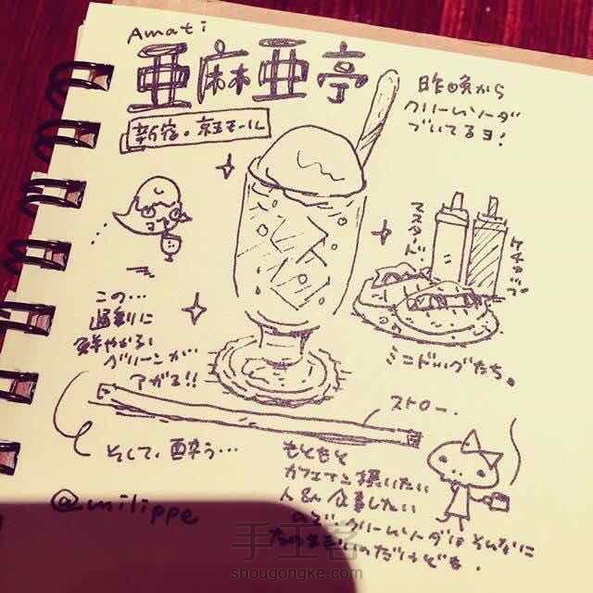 Amati
亜麻亜亭
新宿・京王モール
昨晩から
クリームソーダ
づいてるヨ！
マスタード
ケチャップ
この…
過剰に
鮮やかな
グリーンが…
アガる!!
ミニドッグたち。
ストロー.
そして、酔う…
もともと
カフェマン
人なん
クリームソーダはそんなに
たのまないのだけども.
@milippe
手工客
shougongke.com